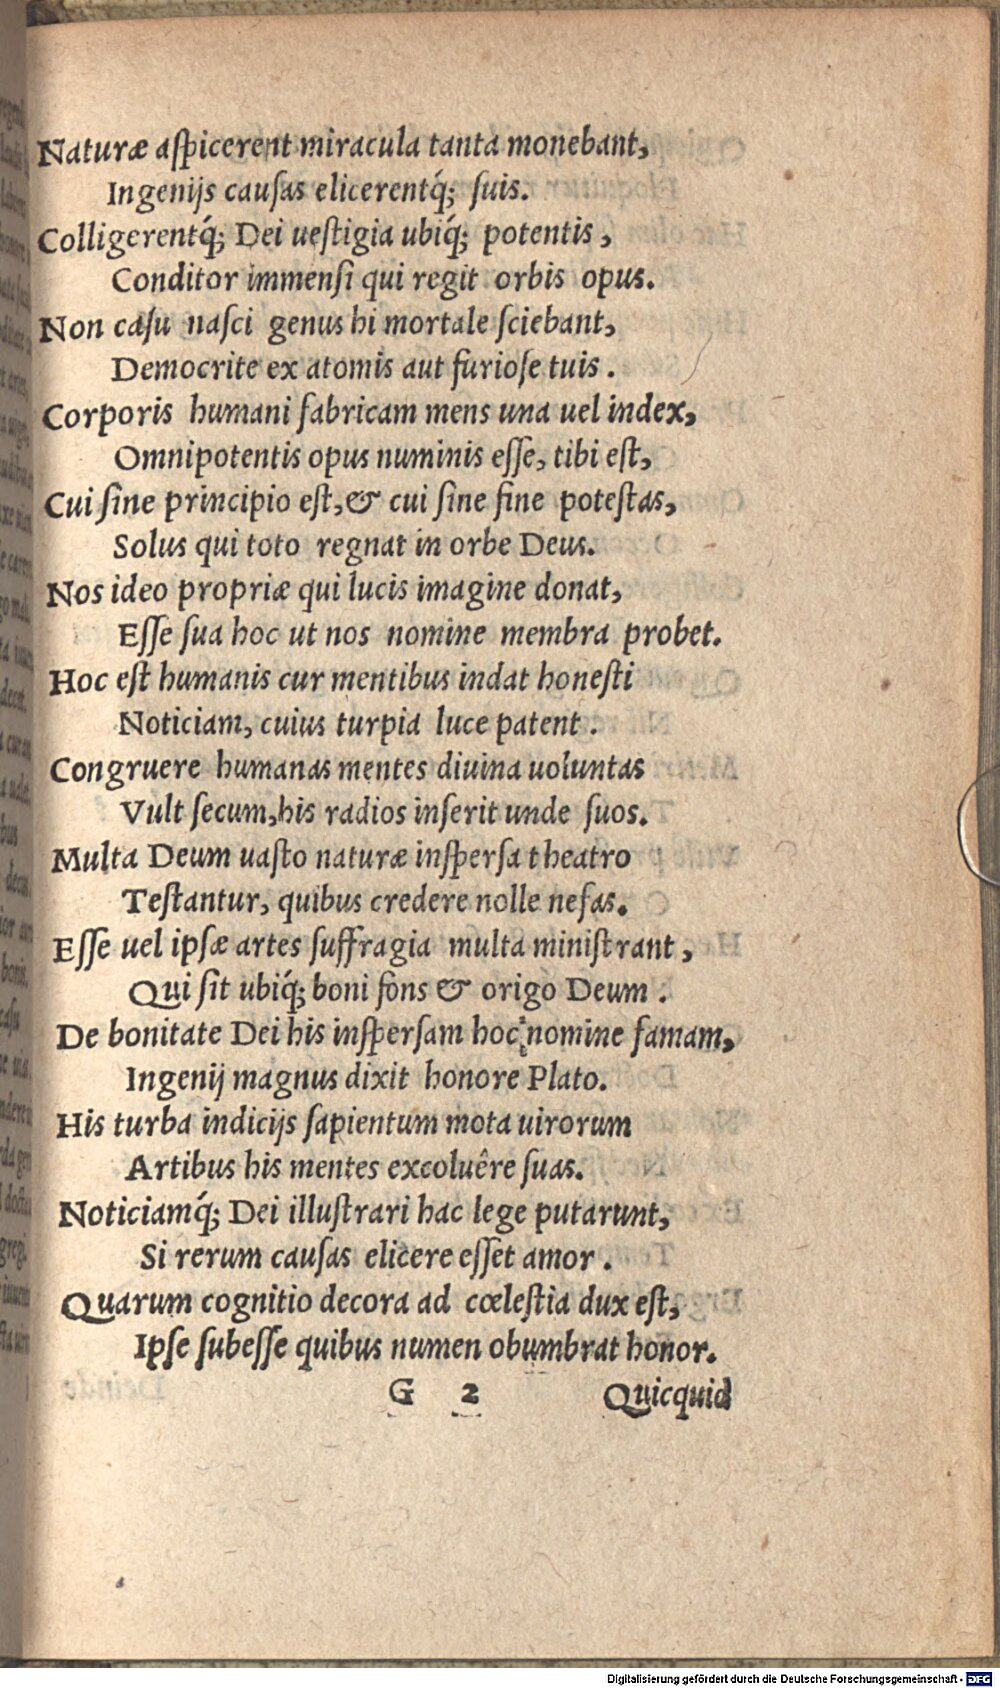 Naturæ aſpicerent miracula tanta monebant,
Ingenijs cauſas elicerentq́; ſuis.
Colligerentq́; Dei ueſtigia ubiq́; potentis,
Conditor immenſi qui regit orbis opus.
Non caſu naſci genus hi mortale ſciebant,
Democrite ex atomis aut furioſe tuis.
Corporis humani fabricam mens una uel index,
Omnipotentis opus numinis eſſe, tibi eſt,
Cui ſine principio eſt, & cui ſine fine poteſtas,
Solus qui toto regnat in orbe Deus.
Nos ideo propriæ qui lucis imagine donat,
Eſſe ſua hoc ut nos nomine membra probet.
Hoc eſt humanis cur mentibus indat honeſti
Noticiam, cuius turpia luce patent.
Congruere humanas mentes diuina uoluntas
Vult ſecum, his radios inſerit unde ſuos.
Multa Deum uaſto naturæ inſperſa theatro
Teſtantur, quibus credere nolle nefas.
Eſſe uel ipſæ artes ſuffragia multa miniſtrant,
Qui ſit ubiq́; boni fons & origo Deum.
De bonitate Dei his inſperſam hoc nomine famam,
Ingenij magnus dixit honore Plato.
His turba indicijs ſapientum mota uirorum
Artibus his mentes excoluêre ſuas.
Noticiamq́; Dei illuſtrari hac lege putarunt,
Si rerum cauſas elicere eſſet amor.
Quarum cognitio decora ad cœleſtia dux eſt,
Ipſe ſubeſſe quibus numen obumbrat honor.
G 2 Quicquid
Digitalisierung gefördert durch die Deutsche Forschungsgemeinschaft - DFG